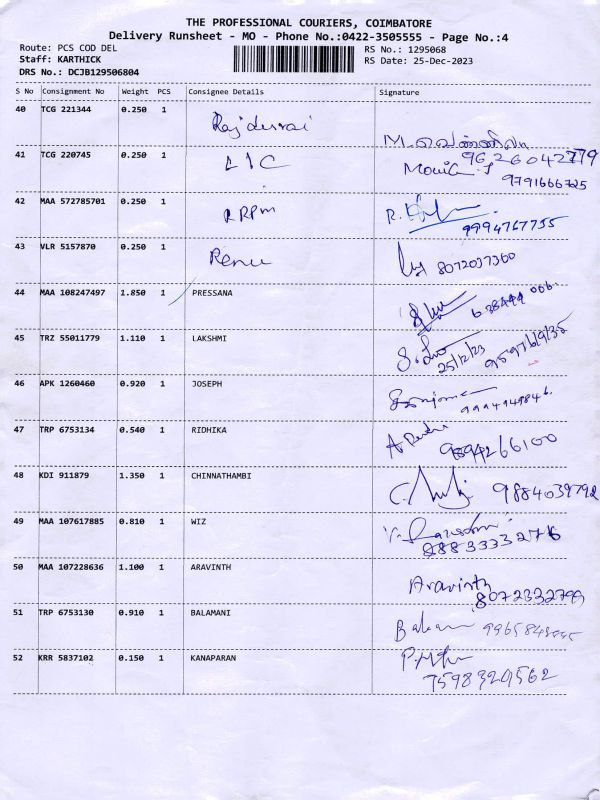 THE PROFESSIONAL COURIERS, COIMBATORE
Delivery Runsheet - MO - Phone No.:0422-3505555 - Page No.:4
Route: PCS COD DEL RS No.: 1295068
Staff: KARTHICK RS Date: 25-Dec-2023
DRS No.: DCJB129506804
S No Consignment No Weight PCS Consignee Details Signature
40 TCG 221344 0.250 1 Rajdurai
9626042779
41 TCG 220745 0.250 1 LIC
9791666725
42 MAA 572785701 0.250 1 RRPm R.
9994767755
43 VLR 5157870 0.250 1 Renu 8072037360
44 MAA 108247497 1.850 1 PRESSANA
45 TRZ 55011779 1.110 1 LAKSHMI
25/12/23
46 APK 1260460 0.920 1 JOSEPH
47 TRP 6753134 0.540 1 RIDHIKA
48 KDI 911879 1.350 1 CHINNATHAMBI C. 9884039792
49 MAA 107617885 0.810 1 WIZ
50 MAA 107228636 1.100 1 ARAVINTH Aravinth
8072332799
51 TRP 6753130 0.910 1 BALAMANI
52 KRR 5837102 0.150 1 KANAPARAN
7598329562